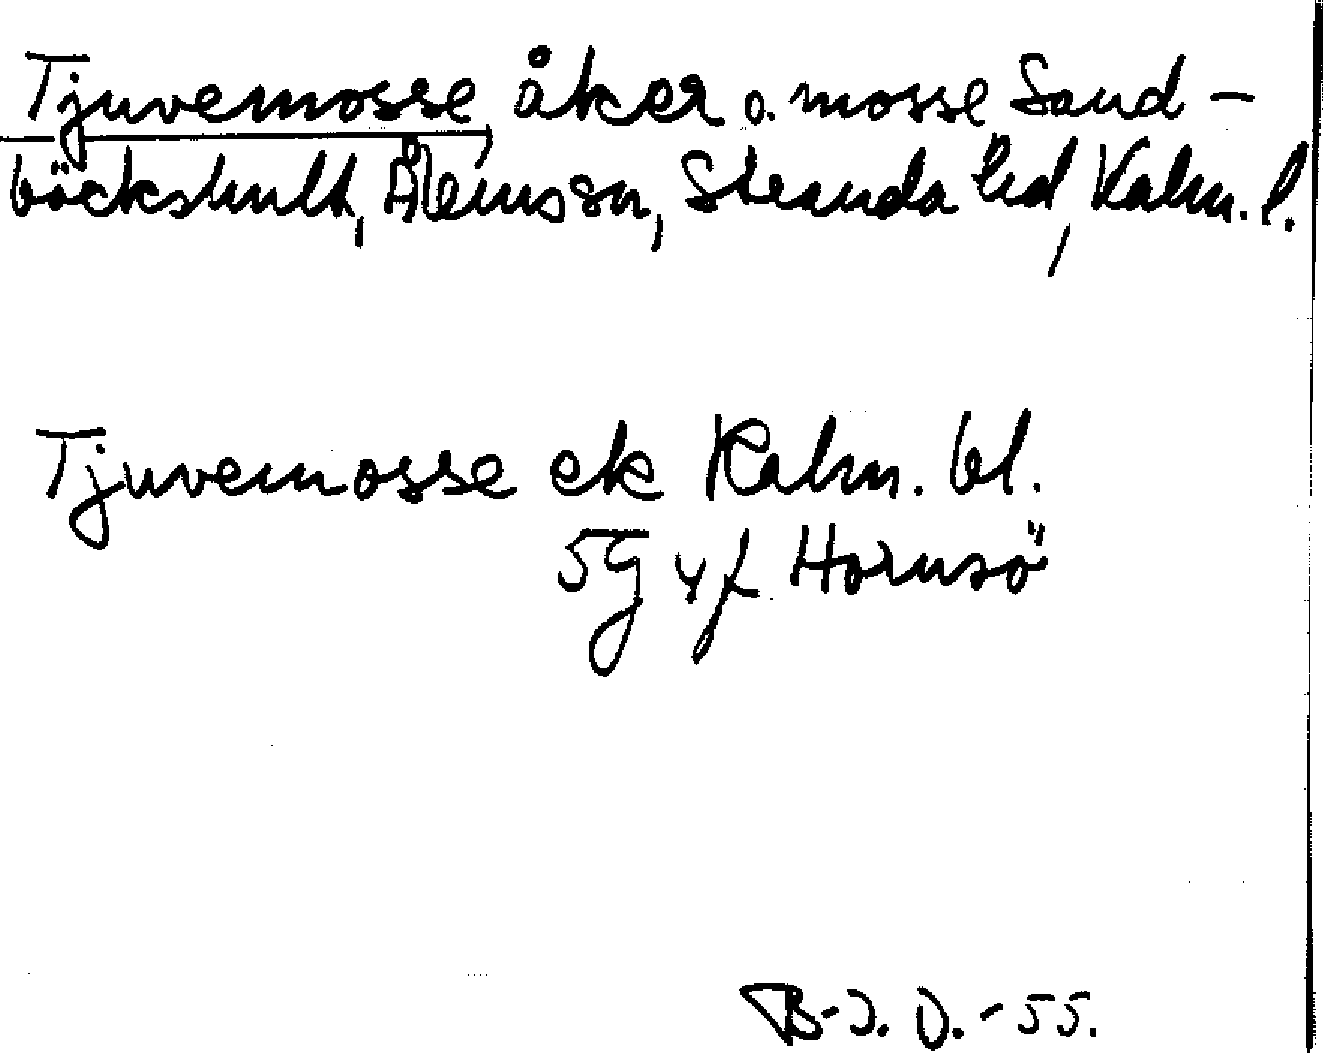 Tjuvemosse, åker o. mosse Sand-
bäckshult, Ålems sn, Stranda hd, Kalm. l.
Tjuvemosse ek Kalm. bl.
5g yf Hornsö
B-J. D. -55.